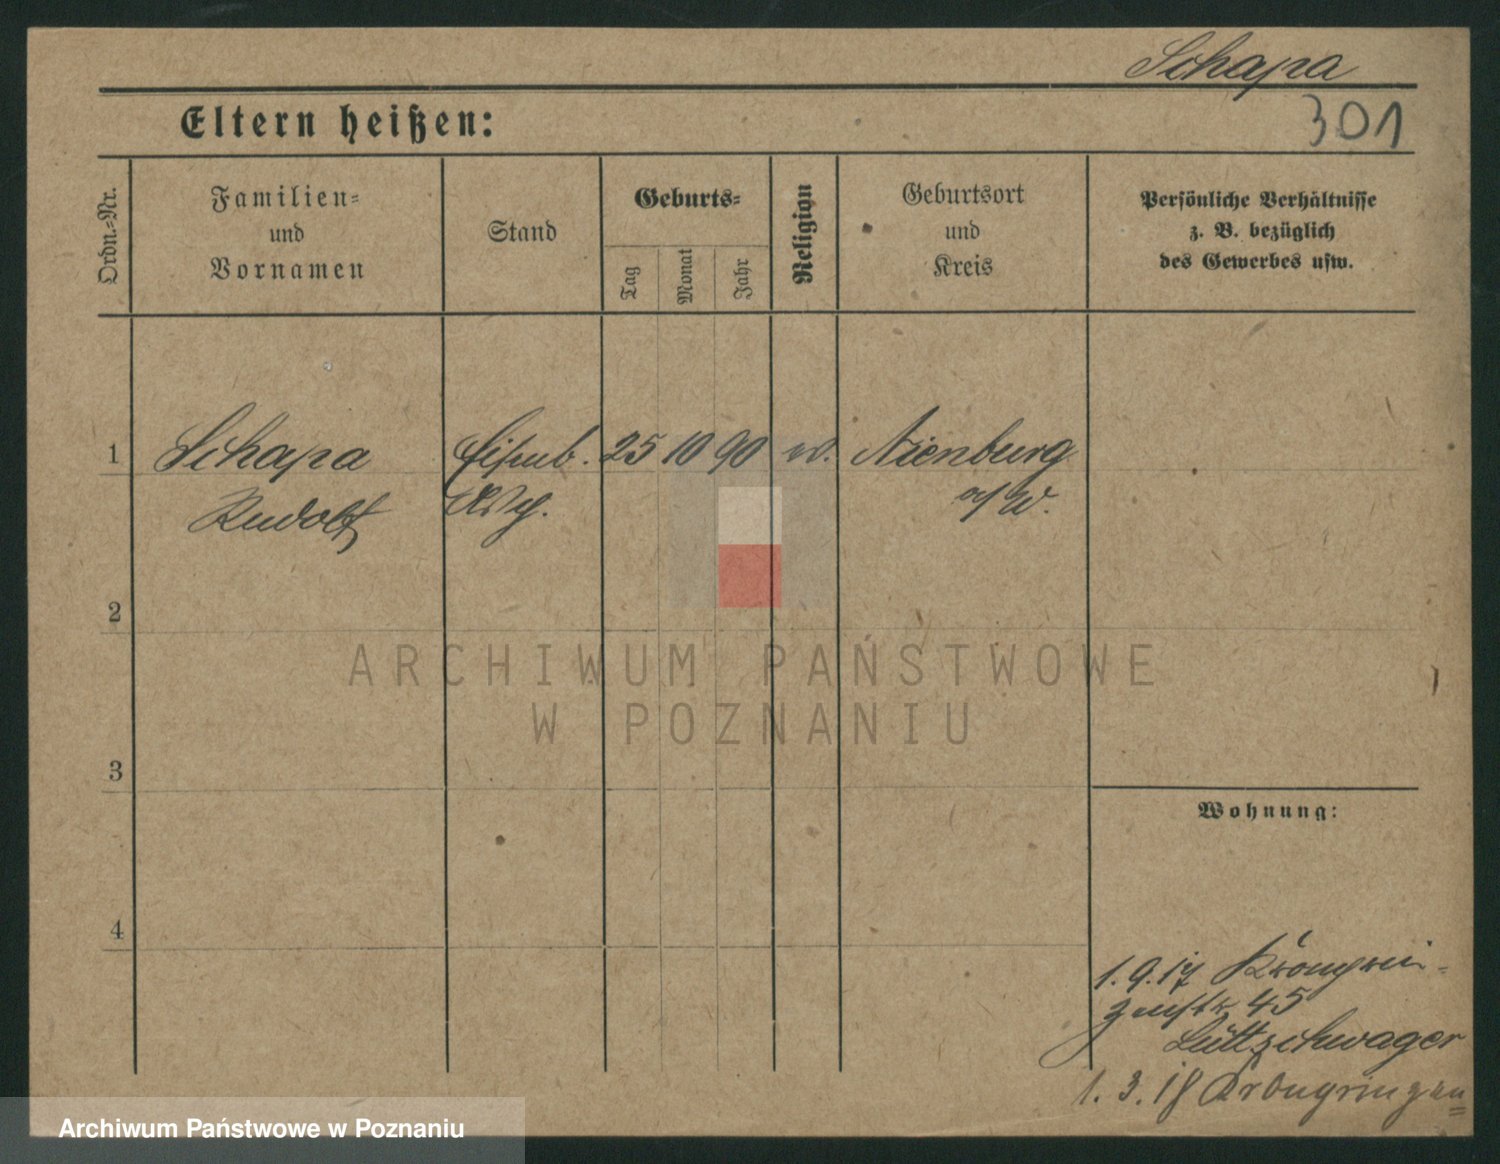 Schapa
301
Eltern heißen:
Ordn.-Nr.
Familien- und Vornamen
Stand
Geburts-
Tag
Monat
Jahr
Religion
Geburtsort und Kreis
Persönliche Verhältnisse
z. B. bezüglich
des Gewerbes usw.
1 Schapa 25 10 90 Nienburg
Rudolf a/W.
2
3
4
ARCHIWUM PAŃSTWOWE
W POZNANIU
Wohnung:
1.9.17 Kronprin-
zenstr. 45
Lüttschwager
1.3.18 Kronprinzen
Archiwum Państwowe w Poznaniu